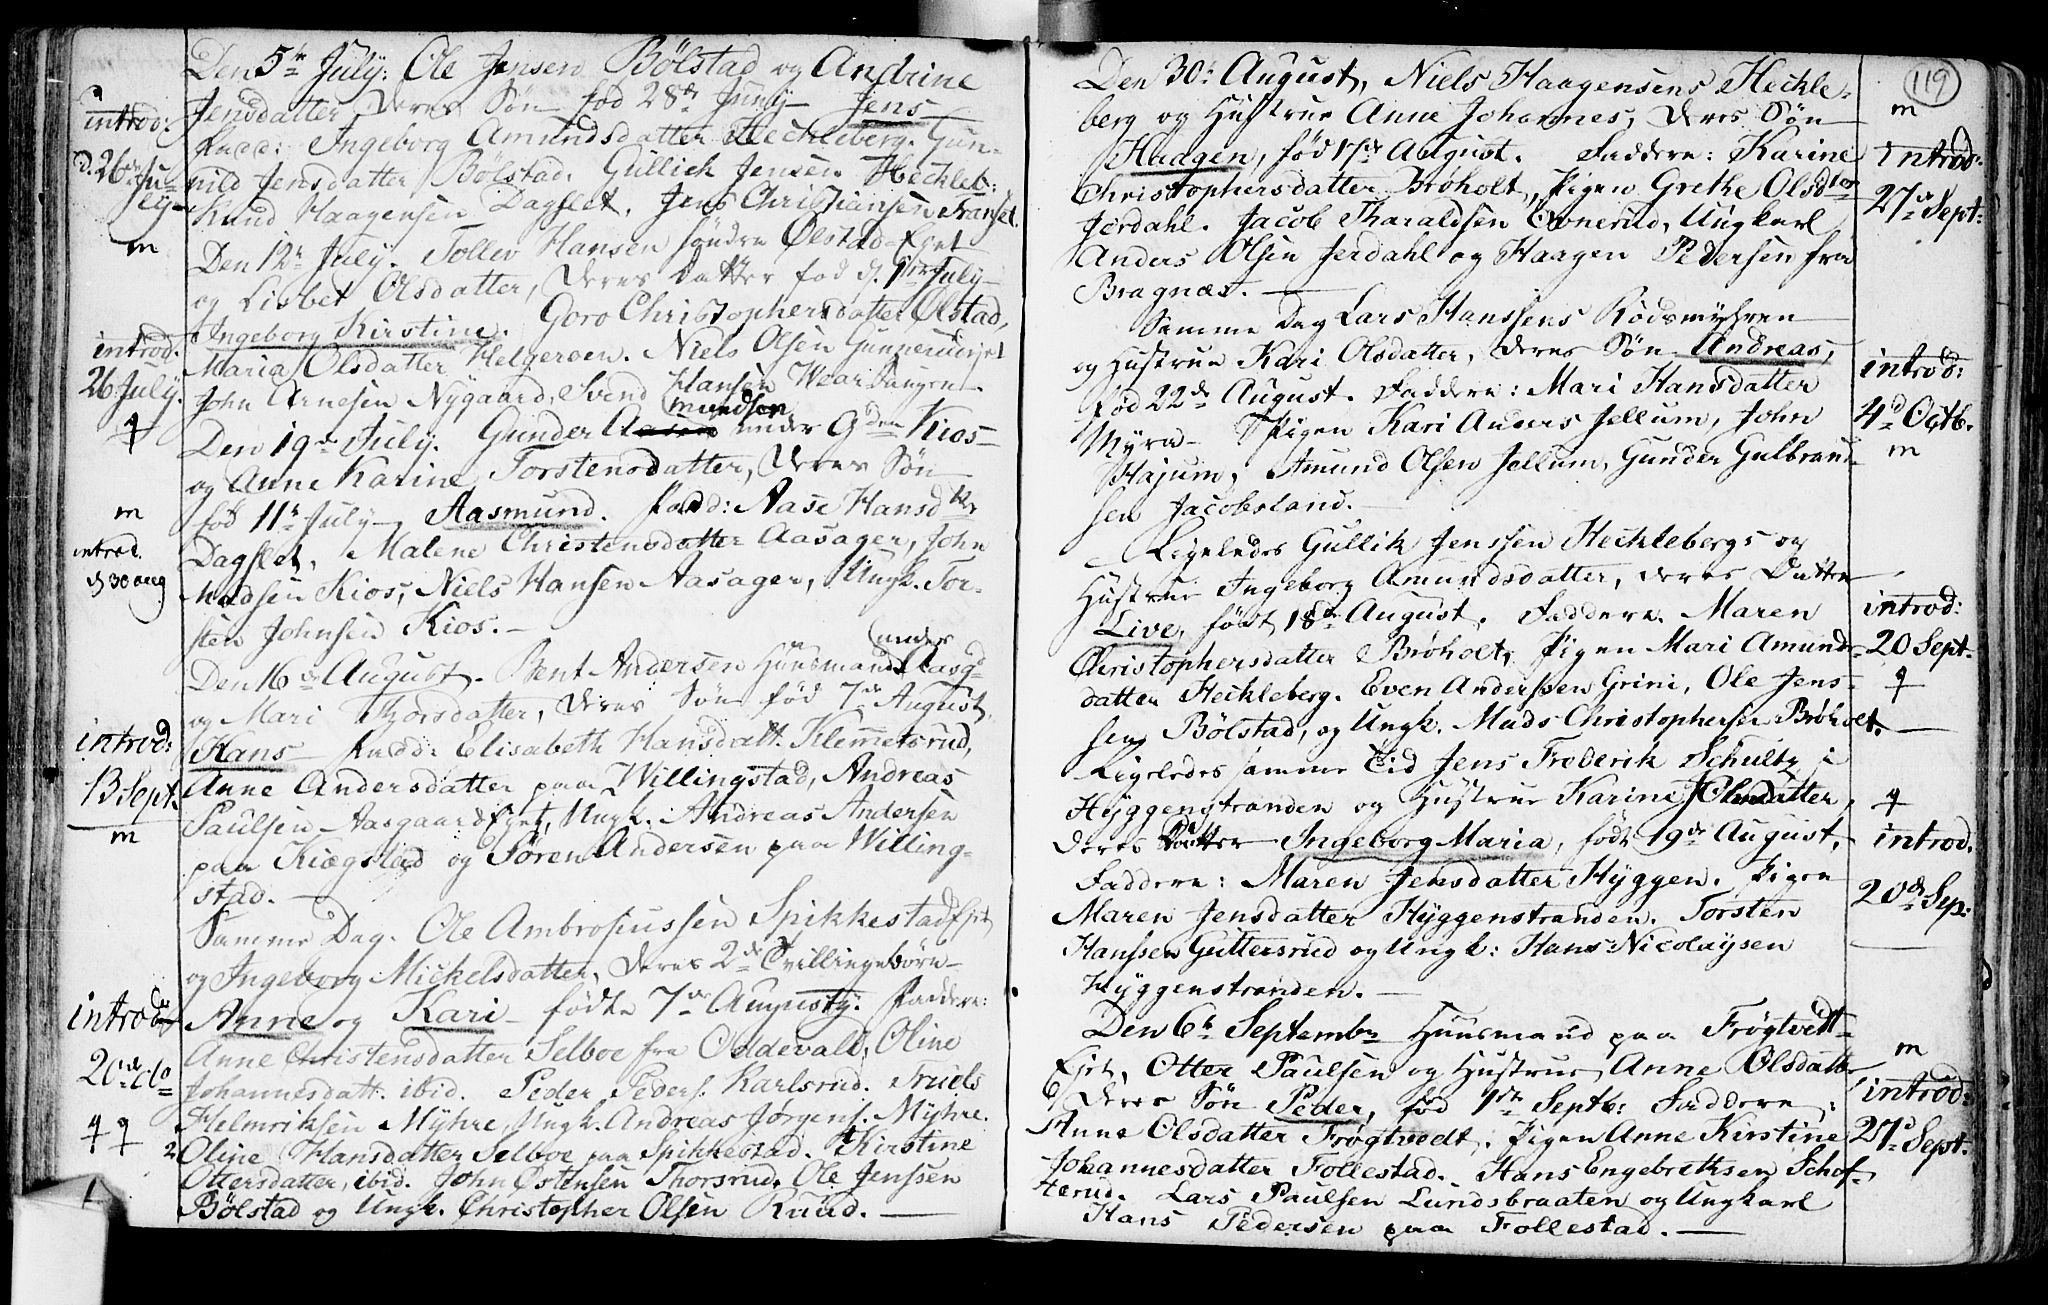 Den 5te July: Ole Jensen Bölstad og Andrine
Jensdatter deres Sön fød 28de Juny Jens
introd:
Fadd: Ingeborg Amundsdatter Heckleberg. Gun-
d. 26de Ju-
nild Jensdatter Bölstad. Gullick Jensen Heckleb:
ly
Knud Haagensen Dagslet. Jens Christiansen
m
Den 12te July. Tollev Hansen söndre Ølstad-Ejet
og Lisbet Olsdatter, deres Datter fød d. July
Ingeborg Kirstine. Goro Christophersdatter Ølstad,
introd.
Maria Olsdatter Helgeroen. Niels Olsen
26 July.
John Arnesen Nygaard, Svend Hansen
mundsen
Den 19de July. Gunder under Kios
og Anne Karine Torstensdatter, deres Sön
fød 11te July Aasmund. Fadd: Aase Hansdtr
m
Dagslet. Malene Christensdatter Aasager, John
introd.
d 30 aug
Madsen Kios, Niels Hansen Aasager, Ungk. Tor-
sten Johnsen Kios.
under
Den 16de August. Bent Andersen Huusmand Aasg
og Mari Thorsdatter, deres Sön fød 7de August
introd:
Hans Fadd: Elisabeth Hansdatt. Klemmetsrud,
13 Sept.
Anne Andersdatter paa Willingstad, Andreas
Paulsen Aasgaard Ejet, Ungk. Andreas Andersen
m
paa Kiøgstad og Sören Andersen paa Willing-
stad.
Samme Dag. Ole Ambrosiussen Spikkestad Ejet
og Ingeborg Mickelsdatter, deres 2de Tvillingebörn
introd
Anne og Kari fødte 7de Augusty. Faddere:
Anne Christensdatter Selboe fra Oddevald, Oline
20de do
Johannesdatt. ibid. Peder Peders. Karlsrud. Truels
Helmriksen Myhre, Ungk. Andreas Jørgens. Myhre.
2 Oline Hansdatter Selboe paa Spikkestad. Kirstine
Ottersdatter, ibid. John Østensen Thorsrud. Ole Jenssen
Bölstad og Ungk. Christopher Olsen Ruud.
119
Den 30: August, Niels Haagensens Heckle-
berg og Hustrue Anne Johannes, deres Sön
m
Haagen, fød 17de August. Faddere: Karine
introd:
Christophersdatter Brøholt, Pigen Grethe Olsdter
27de Sept:
Jerdahl. Jacob Tharaldsen Ovnerud, Ungkarl
Anders Olsen Jerdahl og Haagen Pedersen fra
Bragnæs.
Samme Dag Lars Hanssens Rödsmyhren
og Hustrue Kari Olsdatter, deres Sön Andreas,
introd:
fød 22de August. Faddere: Mari Hansdatter
4de Octb.
Myra Pigen Kari Anders Jellum, John
m
Hajum, Amund Olsen Jellum, Gunder Gulbrand-
sen Jacobsland.
Ligeledes Gullik Jenssen Hecklebergs og
Hustrue Ingeborg Amundsdatter, deres Datter
introd:
Live, født 18de August. Faddere. Maren
20 Sept.
Christophersdatter Brøholt, Pigen Mari Amunds-
datter Heckleberg. Even Anderssen Grini, Ole Jens-
sen Bölstad, og Ungk. Mads Christophersen Brøholt.
Ligeledes samme Tid Jens Frederik Schultz i
Hyggenstranden og Hustrue Karine Olsdatter,
deres Datter Ingeborg Maria, født 19de August,
introd.
Faddere: Maren Jensdatter Hyggen. Pigen
20de Sep:
Maren Jensdatter Hyggenstranden. Torsten
Hanssen Guttersrud og Ungk: Hans Nicolaysen
Hyggenstranden.
Den 6te Septembr Huusmand paa Frøgtvedt-
m
Ejet, Otter Paulsen og Hustrue Anne Olsdatter
introd:
deres Sön Peder, fød 1ste Septb: Faddere:
27de Sept.
Anne Olsdatter Frøgtvedt, Pigen Anne Kirstine
Johannesdatter Follestad. Hans Engebrethsen Schof-
terud. Lars Paulsen Lundsbraaten og Ungkarl
Hans Pedersen paa Follestad.